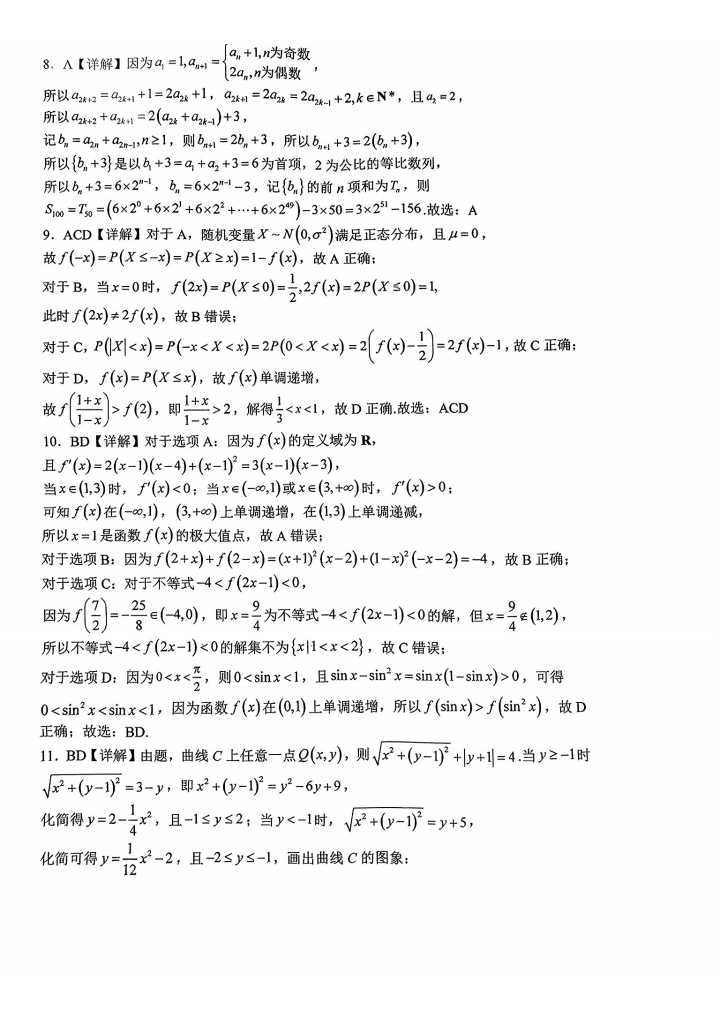 8．A【详解】因为a₁=1,aₙ₊₁={aₙ+1,n为奇数
2aₙ,n为偶数，
所以a₂ₖ₊₂=a₂ₖ₊₁+1=2a₂ₖ+1，a₂ₖ₊₁=2a₂ₖ=2a₂ₖ₋₁+2,k∈N*，且a₂=2，
所以a₂ₖ₊₂+a₂ₖ₊₁=2(a₂ₖ+a₂ₖ₋₁)+3，
记bₙ=a₂ₙ+a₂ₙ₋₁,n≥1，则bₙ₊₁=2bₙ+3，所以bₙ₊₁+3=2(bₙ+3)，
所以{bₙ+3}是以b₁+3=a₁+a₂+3=6为首项，2为公比的等比数列，
所以bₙ+3=6×2ⁿ⁻¹，bₙ=6×2ⁿ⁻¹−3，记{bₙ}的前n项和为Tₙ，则
S₁₀₀=T₅₀=(6×2⁰+6×2¹+6×2²+⋯+6×2⁴⁹)−3×50=3×2⁵¹−156.故选：A
9．ACD【详解】对于A，随机变量X~N(0,σ²)满足正态分布，且μ=0，
故f(−x)=P(X≤−x)=P(X≥x)=1−f(x)，故A正确；
对于B，当x=0时，f(2x)=P(X≤0)=1/2,2f(x)=2P(X≤0)=1,
此时f(2x)≠2f(x)，故B错误；
对于C，P(|X|<x)=P(−x<X<x)=2P(0<X<x)=2(f(x)−1/2)=2f(x)−1,故C正确；
对于D，f(x)=P(X≤x)，故f(x)单调递增，
故f((1+x)/(1−x))>f(2)，即(1+x)/(1−x)>2，解得1/3<x<1，故D正确.故选：ACD
10．BD【详解】对于选项A：因为f(x)的定义域为R，
且f′(x)=2(x−1)(x−4)+(x−1)²=3(x−1)(x−3)，
当x∈(1,3)时，f′(x)<0；当x∈(−∞,1)或x∈(3,+∞)时，f′(x)>0；
可知f(x)在(−∞,1)，(3,+∞)上单调递增，在(1,3)上单调递减，
所以x=1是函数f(x)的极大值点，故A错误；
对于选项B：因为f(2+x)+f(2−x)=(x+1)²(x−2)+(1−x)²(−x−2)=−4，故B正确；
对于选项C：对于不等式−4<f(2x−1)<0，
因为f(7/2)=−25/8∈(−4,0)，即x=9/4为不等式−4<f(2x−1)<0的解，但x=9/4∉(1,2)，
所以不等式−4<f(2x−1)<0的解集不为{x|1<x<2}，故C错误；
对于选项D：因为0<x<π/2，则0<sinx<1，且sinx−sin²x=sinx(1−sinx)>0，可得
0<sin²x<sinx<1，因为函数f(x)在(0,1)上单调递增，所以f(sinx)>f(sin²x)，故D
正确；故选：BD.
11．BD【详解】由题，曲线C上任意一点Q(x,y)，则√(x²+(y−1)²)+|y+1|=4.当y≥−1时
√(x²+(y−1)²)=3−y，即x²+(y−1)²=y²−6y+9，
化简得y=2−1/4x²，且−1≤y≤2；当y<−1时，√(x²+(y−1)²)=y+5，
化简可得y=1/12x²−2，且−2≤y≤−1，画出曲线C的图象；